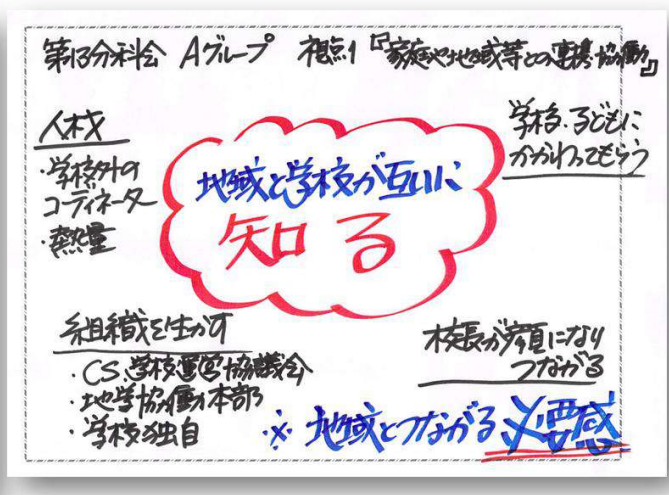 第13分科会 Aグループ 視点1『家庭や地域等との連携・協働』
人材
・学校外の
コーディネーター
・熱量
地域と学校が互いに
知る
学校・子どもに
かかわってもらう
組織を生かす
・CS、学校運営協議会
・地学協働本部
・学校独自
校長が顔になり
つながる
※地域とつながる必要感